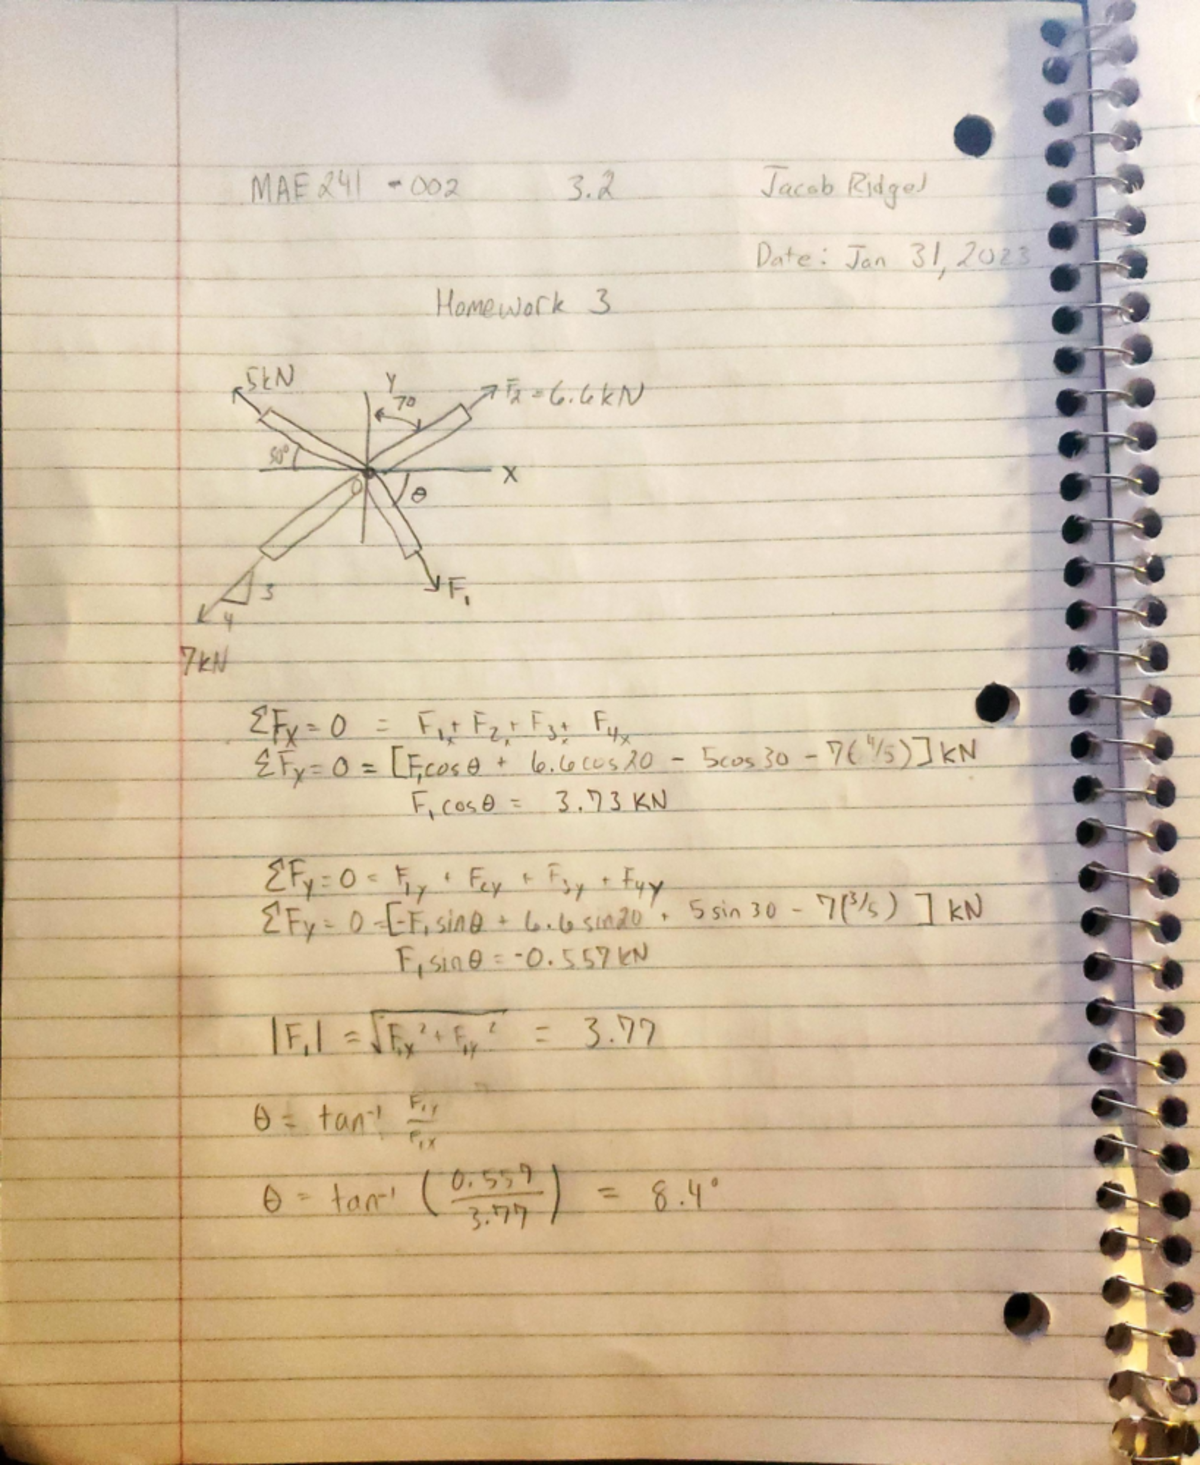 MAE 241 - 002 3.2 Jacob Ridgel
Date: Jan 31, 2023
Homework 3
5kN Y 70 F₂ = 6.6kN
30° X
O θ
3 F₁
4
7kN
ΣFx = 0 = F₁ₓ + F₂ₓ + F₃ₓ + F₄ₓ
ΣFx = 0 = [F₁cosθ + 6.6cos20 - 5cos30 - 7(4/5)] kN
F₁cosθ = 3.73 KN
ΣFy = 0 = F₁y + F₂y + F₃y + F₄y
ΣFy = 0 = [-F₁sinθ + 6.6sin20 + 5sin30 - 7(3/5)] kN
F₁sinθ = -0.557kN
|F₁| = √F₁ₓ² + F₁y² = 3.77
θ = tan⁻¹ F₁y/F₁ₓ
θ = tan⁻¹ (0.557/3.77) = 8.4°